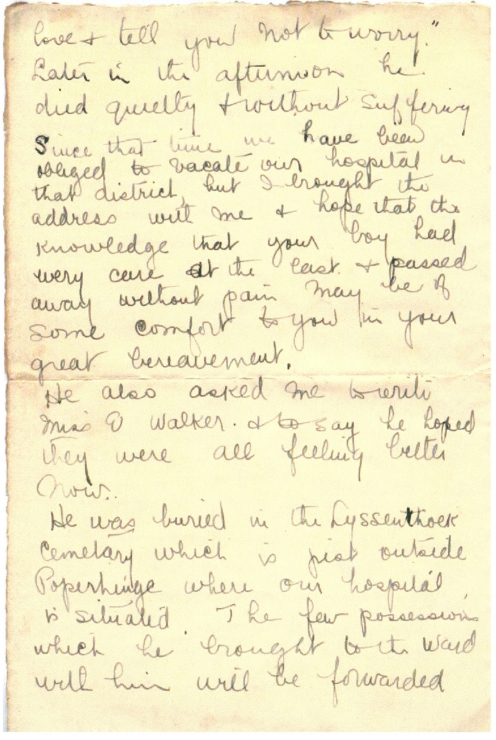 love & tell you not to worry."
Later in the afternoon he
died quietly & without suffering
Since that time we have been
obliged to vacate our hospital in
that district, but I brought the
address with me & hope that the
knowledge that your boy had
every care at the last & passed
away without pain may be of
some comfort to you in your
great bereavement.
He also asked me to write
Miss D Walker. & to say he hoped
they were all feeling better
now.
He was buried in the Lyssenthoek
Cemetary which is just outside
Poperhinge where our hospital
is situated. The few possessions
which he brought to the Ward
with him will be forwarded